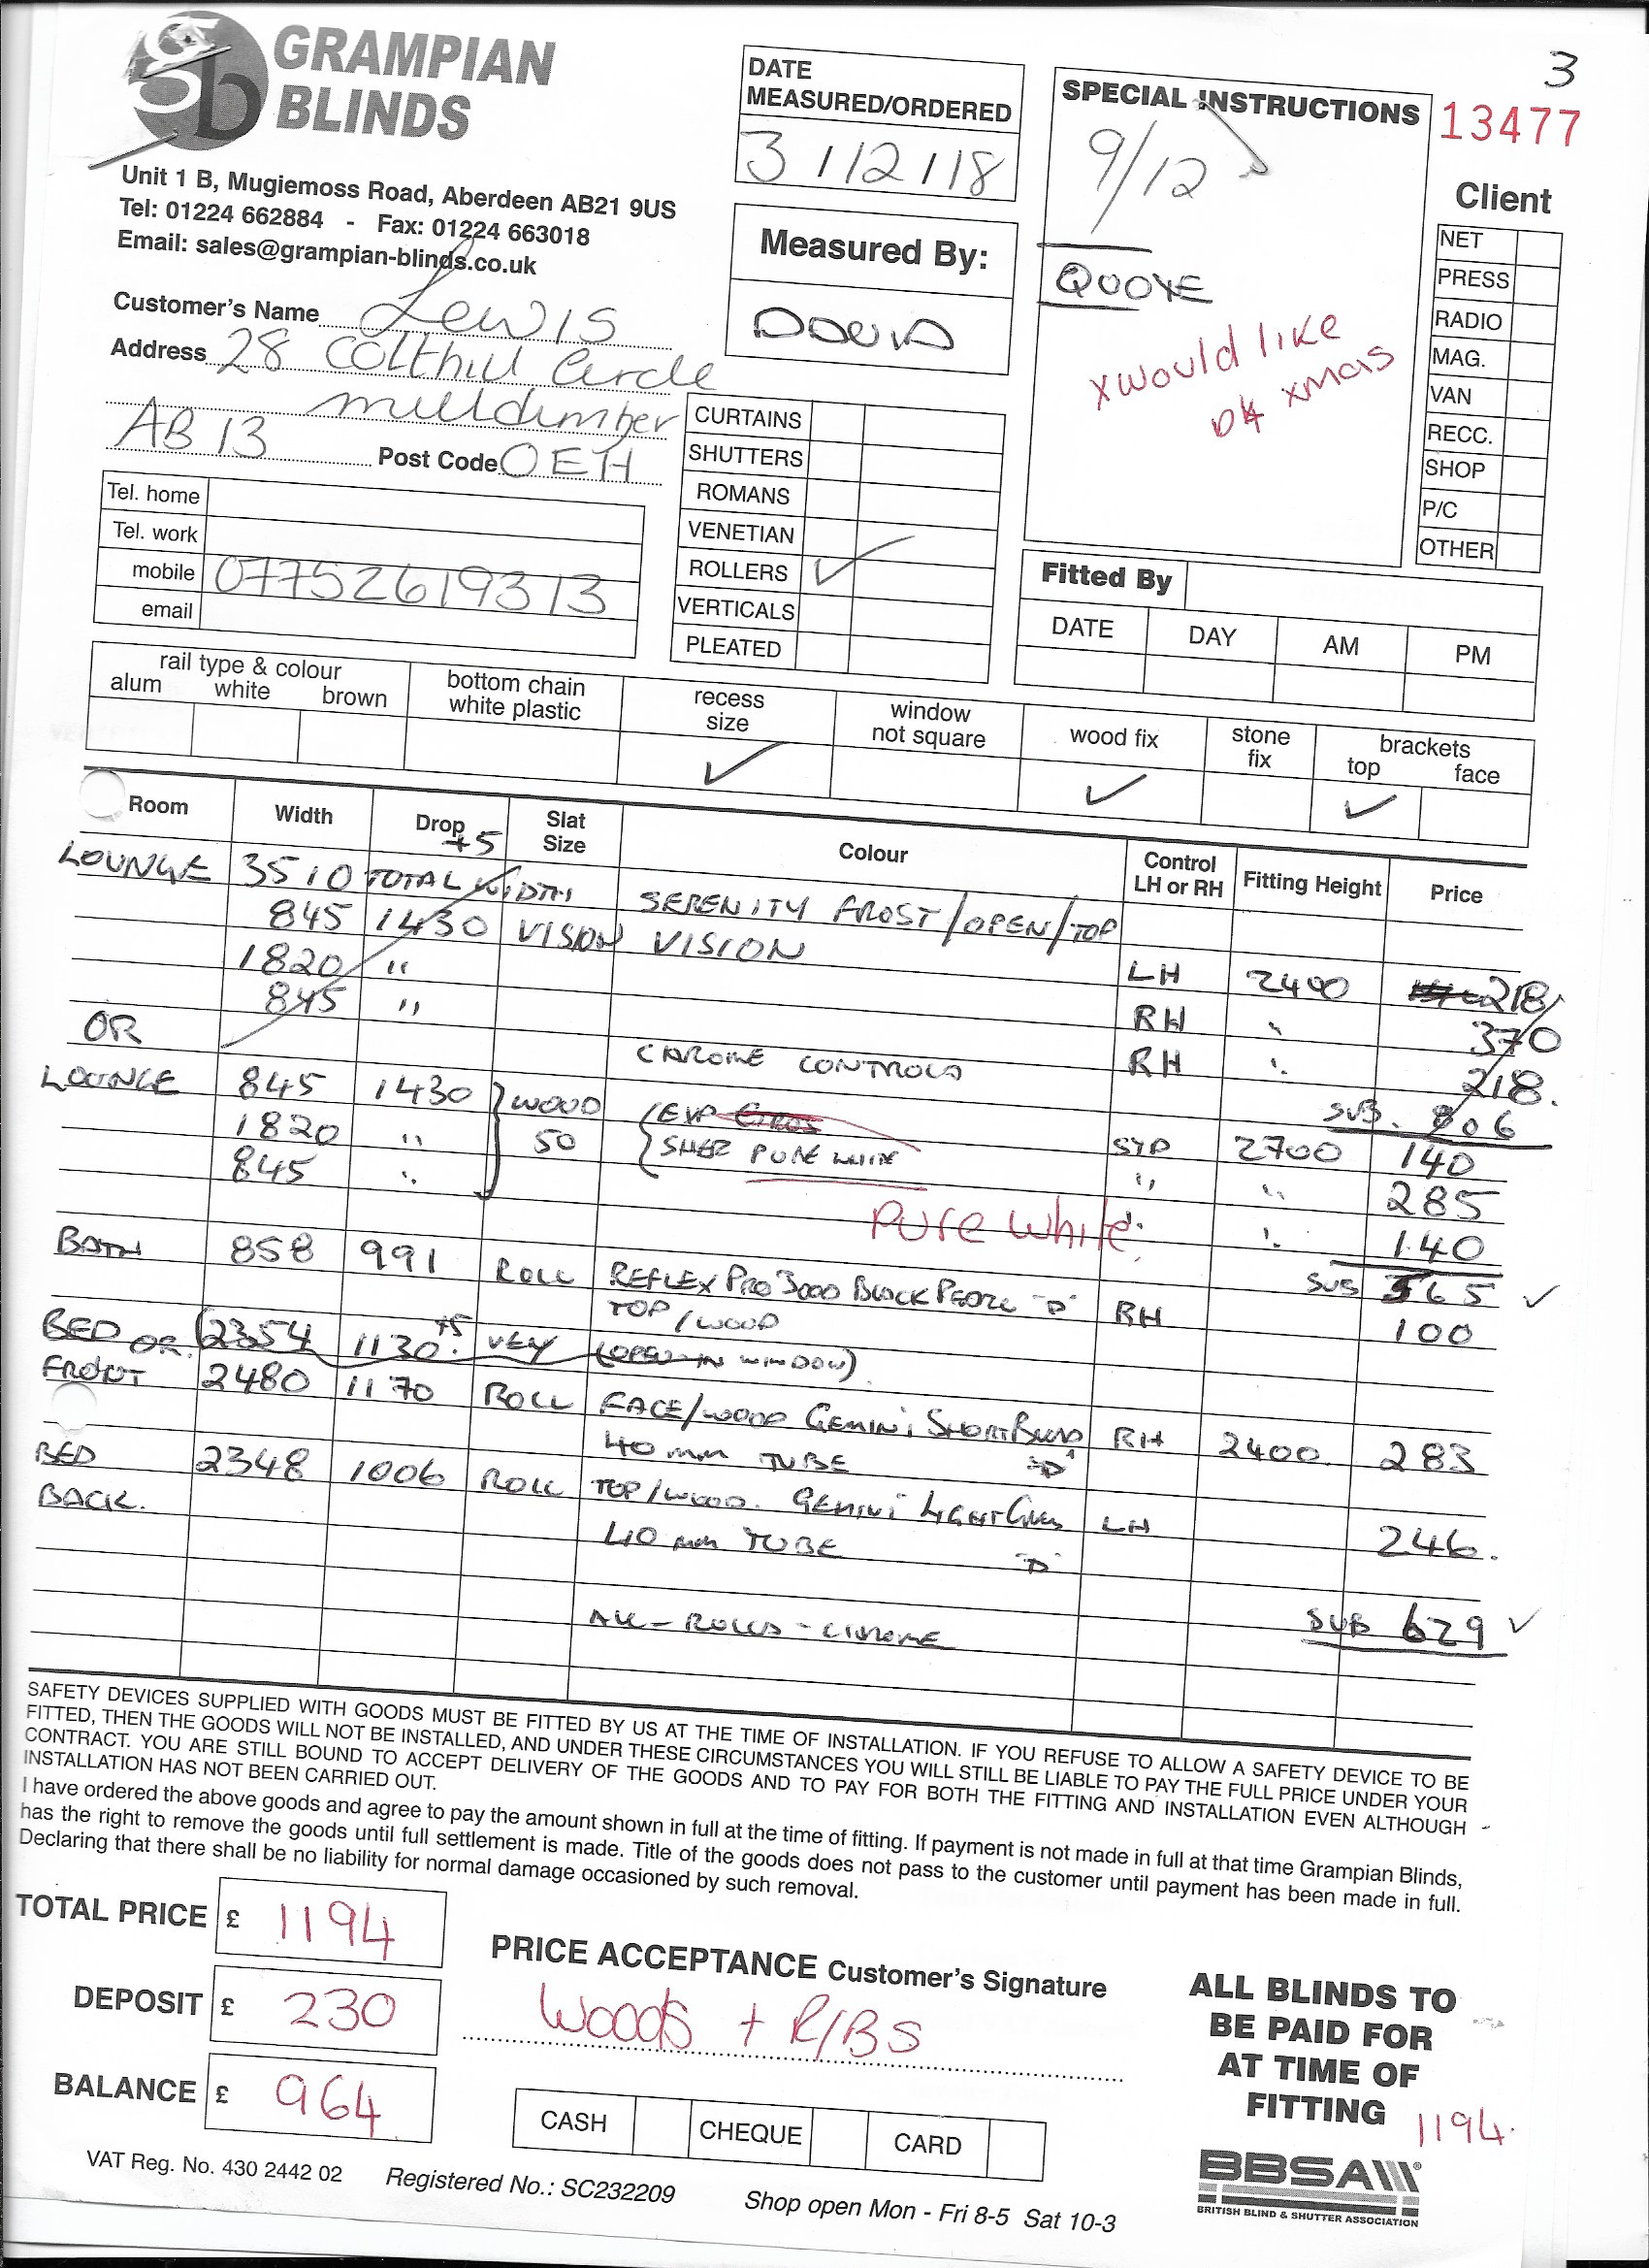 3
GRAMPIAN
BLINDS
Unit 1 B, Mugiemoss Road, Aberdeen AB21 9US
Tel: 01224 662884 - Fax: 01224 663018
Email: sales@grampian-blinds.co.uk
Customer's Name Lewis
Address 28 Colthill Circle
Milltimber
AB13 Post Code 0EH
Tel. home
Tel. work
mobile 07752619313
email
DATE
MEASURED/ORDERED
3/12/18
Measured By:
DAVID
CURTAINS
SHUTTERS
ROMANS
VENETIAN
ROLLERS ✓
VERTICALS
PLEATED
SPECIAL INSTRUCTIONS
9/12
QUOTE
x would like
b4 xmas
13477
Client
NET
PRESS
RADIO
MAG.
VAN
RECC.
SHOP
P/C
OTHER
Fitted By
DATE DAY AM PM
rail type & colour
alum white brown
bottom chain
white plastic
recess
size ✓
window
not square
wood fix ✓
stone
fix
brackets
top face
✓
Room Width Drop +5 Slat Size Colour Control LH or RH Fitting Height Price
LOUNGE 3510 TOTAL WIDTH SERENITY FROST/OPEN/TOP
845 1430 VISION VISION LH 2400 218
1820 " RH " 370
845 " CHROME CONTROLS RH " 218.
OR SUB. 806
LOUNGE 845 1430 WOOD SYD 2700 140
1820 " 50 SHER PURE WHITE " " 285
845 " " " 140
Pure White.
SUB 565 ✓
BATH 858 991 ROLL REFLEX PRO 3000 BLACK PEARL "D" RH 100
TOP/WOOD
BED OR (2354 1130 +5 VEY (OPEN IN WINDOW)
FRONT 2480 1170 ROLL FACE/WOOD GEMINI RH 2400 283
40 mm TUBE "D"
BED 2348 1006 ROLL TOP/WOOD. GEMINI LIGHT LH 246.
BACK. 40 mm TUBE "D"
ALL - ROLLS - CHROME SUB 629 ✓
SAFETY DEVICES SUPPLIED WITH GOODS MUST BE FITTED BY US AT THE TIME OF INSTALLATION. IF YOU REFUSE TO ALLOW A SAFETY DEVICE TO BE
FITTED, THEN THE GOODS WILL NOT BE INSTALLED, AND UNDER THESE CIRCUMSTANCES YOU WILL STILL BE LIABLE TO PAY THE FULL PRICE UNDER YOUR
CONTRACT. YOU ARE STILL BOUND TO ACCEPT DELIVERY OF THE GOODS AND TO PAY FOR BOTH THE FITTING AND INSTALLATION EVEN ALTHOUGH
INSTALLATION HAS NOT BEEN CARRIED OUT.
I have ordered the above goods and agree to pay the amount shown in full at the time of fitting. If payment is not made in full at that time Grampian Blinds,
has the right to remove the goods until full settlement is made. Title of the goods does not pass to the customer until payment has been made in full.
Declaring that there shall be no liability for normal damage occasioned by such removal.
TOTAL PRICE £ 1194
DEPOSIT £ 230
BALANCE £ 964
PRICE ACCEPTANCE Customer's Signature
Woods + R/BS
CASH CHEQUE CARD
ALL BLINDS TO
BE PAID FOR
AT TIME OF
FITTING 1194.
BBSA
BRITISH BLIND & SHUTTER ASSOCIATION
VAT Reg. No. 430 2442 02 Registered No.: SC232209 Shop open Mon - Fri 8-5 Sat 10-3